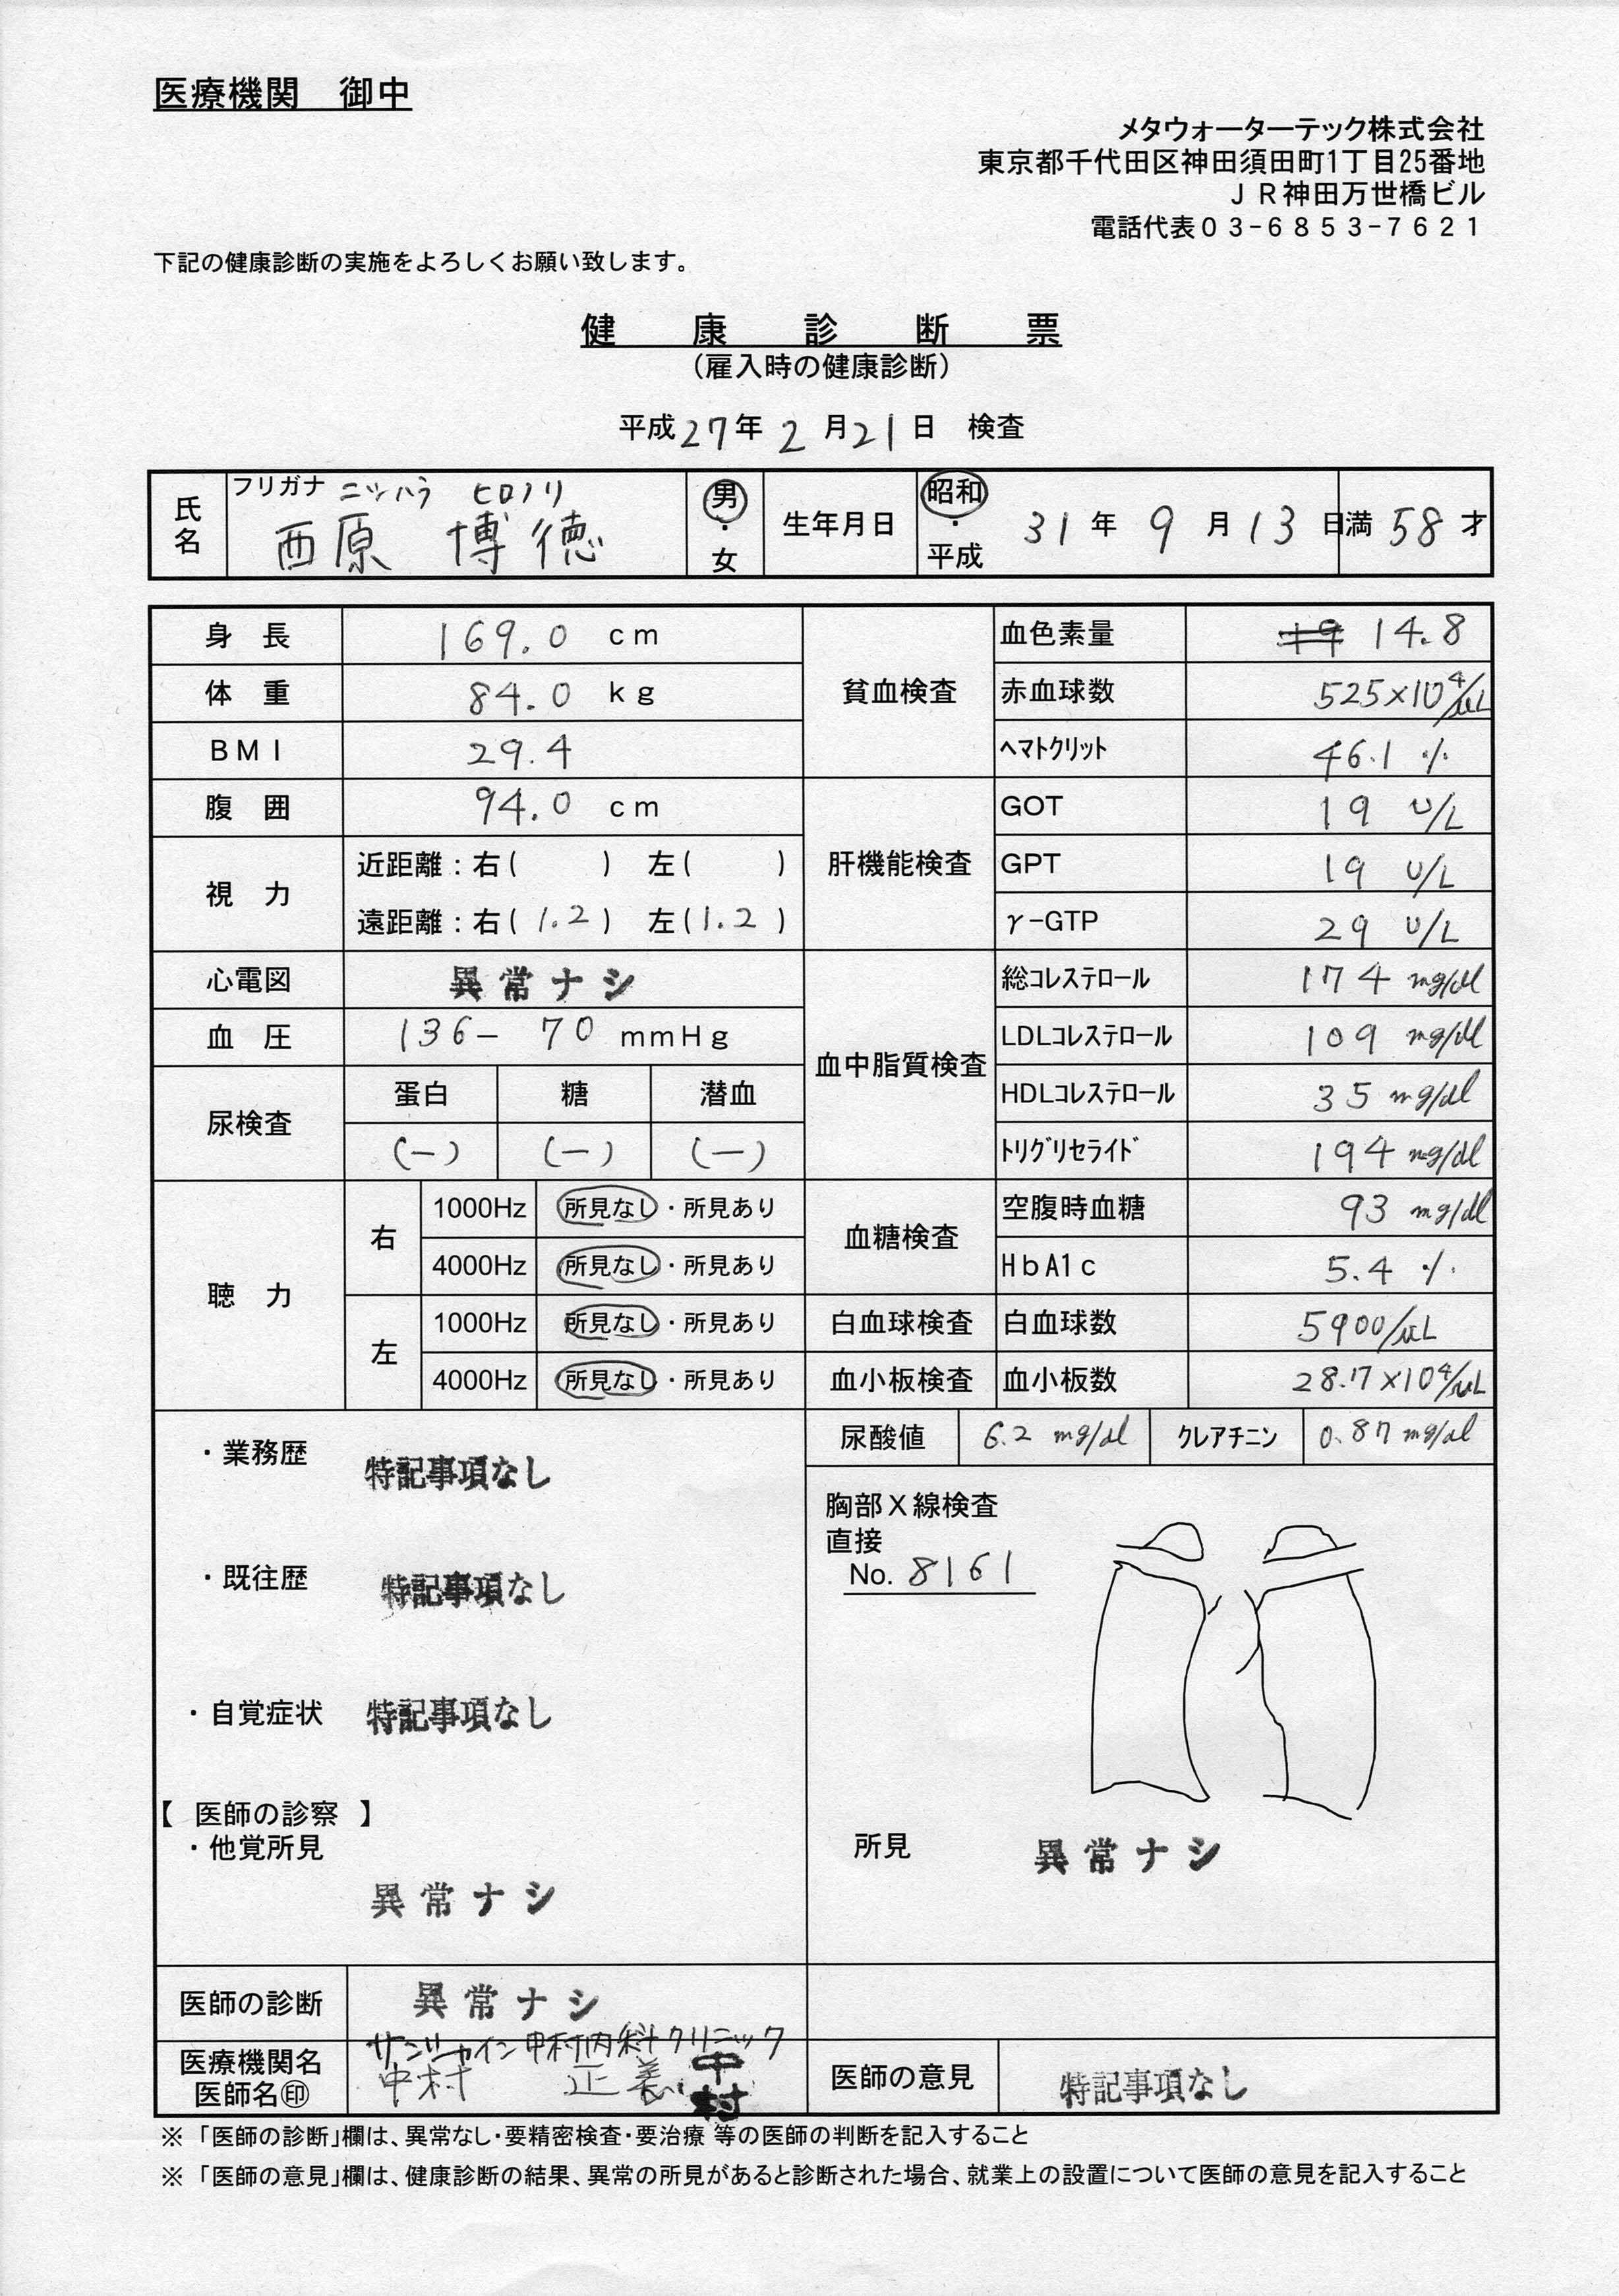 医療機関　御中
メタウォーターテック株式会社
東京都千代田区神田須田町1丁目25番地
ＪＲ神田万世橋ビル
電話代表０３-６８５３-７６２１
下記の健康診断の実施をよろしくお願い致します。
健　康　診　断　票
（雇入時の健康診断）
平成27年 2 月21日　検査
氏名 フリガナ ニシハラ ヒロノリ
西原 博徳
男・女 生年月日 昭和・平成 31 年 9 月 13 日 満 58 才
身　長 169.0 cm
体　重 84.0 kg
ＢＭＩ 29.4
腹　囲 94.0 cm
視　力 近距離：右(　　) 左(　　)
遠距離：右( 1.2 ) 左( 1.2 )
心電図 異常ナシ
血　圧 136 − 70 mmHg
尿検査 蛋白 糖 潜血
(−) (−) (−)
聴　力
右 1000Hz 所見なし・所見あり
4000Hz 所見なし・所見あり
左 1000Hz 所見なし・所見あり
4000Hz 所見なし・所見あり
貧血検査 血色素量 14.8
赤血球数 525×10⁴/μL
ﾍﾏﾄｸﾘｯﾄ 46.1 %
肝機能検査 GOT 19 U/L
GPT 19 U/L
γ-GTP 29 U/L
血中脂質検査 総ｺﾚｽﾃﾛｰﾙ 174 mg/dl
LDLｺﾚｽﾃﾛｰﾙ 109 mg/dl
HDLｺﾚｽﾃﾛｰﾙ 35 mg/dl
ﾄﾘｸﾞﾘｾﾗｲﾄﾞ 194 mg/dl
血糖検査 空腹時血糖 93 mg/dl
HbA1c 5.4 %
白血球検査 白血球数 5900/μL
血小板検査 血小板数 28.7×10⁴/μL
尿酸値 6.2 mg/dl ｸﾚｱﾁﾆﾝ 0.87 mg/dl
・業務歴 特記事項なし
・既往歴 特記事項なし
・自覚症状 特記事項なし
【　医師の診察　】
・他覚所見
異常ナシ
胸部Ｘ線検査
直接
No. 8161
所見 異常ナシ
医師の診断 異常ナシ
医療機関名 サンシャイン中村内科クリニック
医師名㊞ 中村 正義 中村
医師の意見 特記事項なし
※ 「医師の診断」欄は、異常なし・要精密検査・要治療 等の医師の判断を記入すること
※ 「医師の意見」欄は、健康診断の結果、異常の所見があると診断された場合、就業上の設置について医師の意見を記入すること